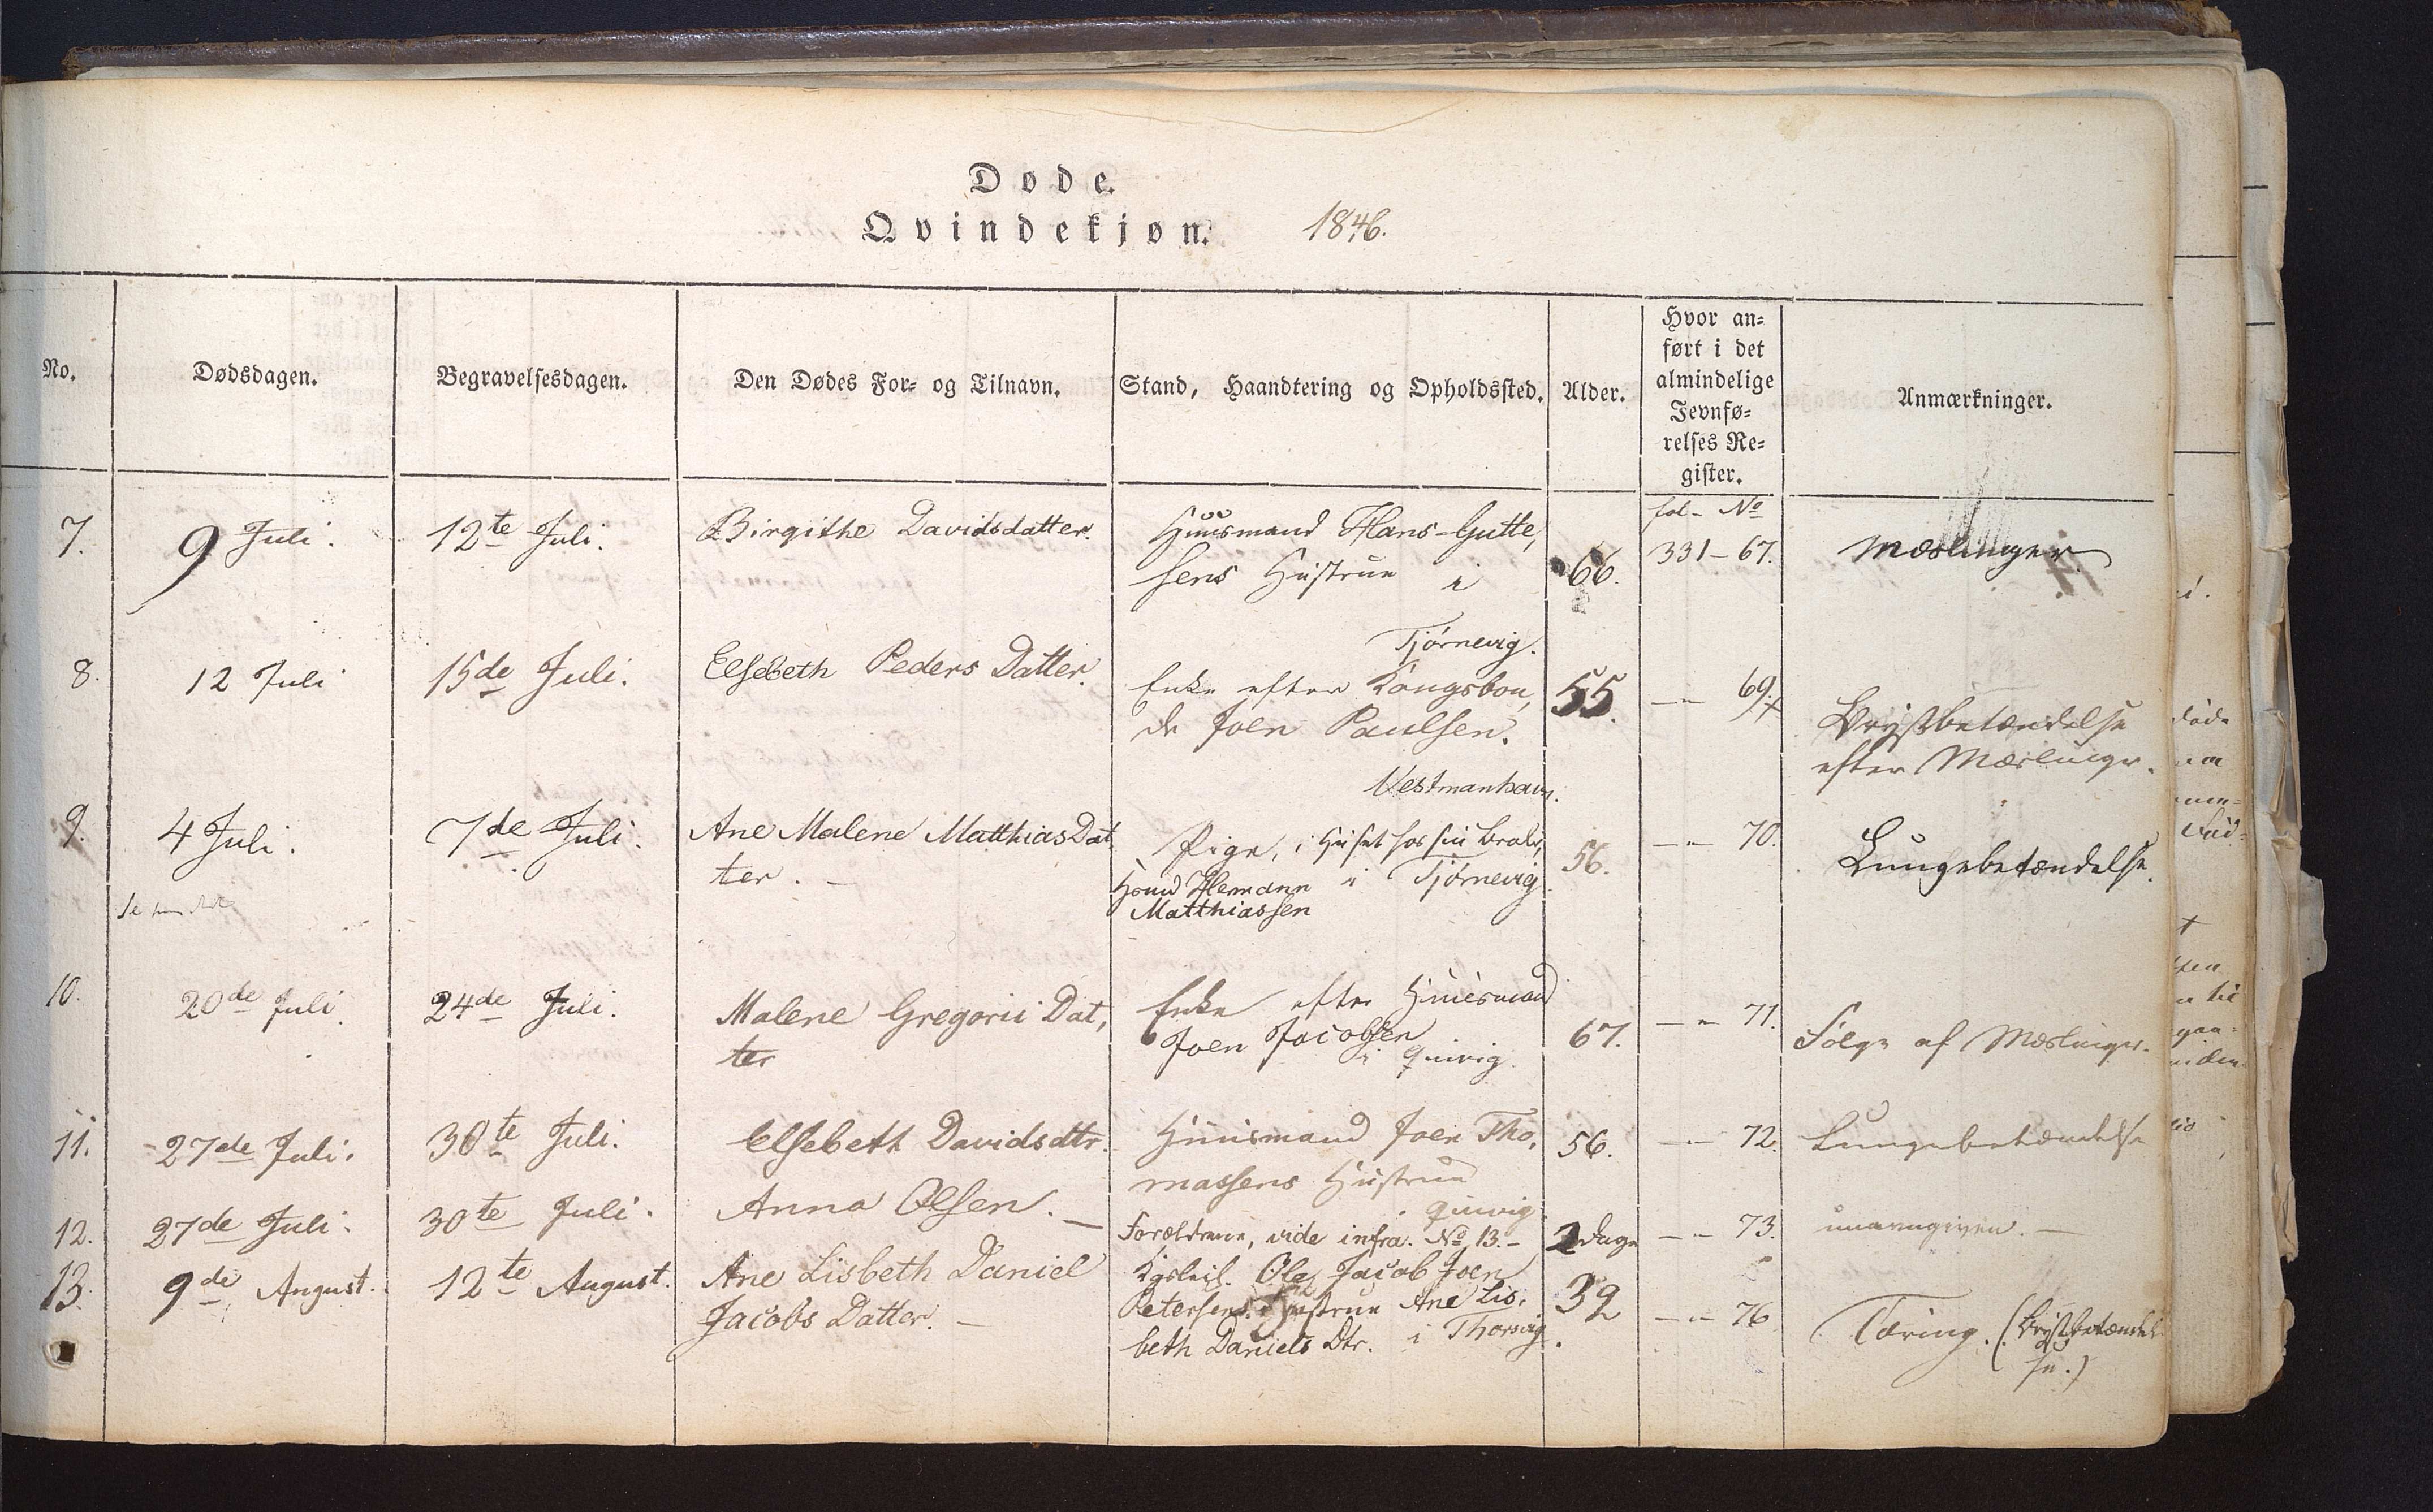 Døde.
Qvindekjøn. 1846.
No.
Dødsdagen.
Begravelsesdagen.
Den Dødes For- og Tilnavn.
Stand, Haandtering og Opholdssted.
Alder.
Hvor an-
ført i det
almindelige
Jevnfø-
relses Re-
gister.
Anmærkninger.
fol - No
7.
9 Juli.
12te Juli.
Birgithe Davidsdatter.
Huusmand Hans Gutte,
sens Hustrue i
Tjørnevig.
66.
331 - 67.
Mæslinger
8.
12 Juli
15de Juli.
Elsebeth Peders Datter.
Enke efter Kongsbon,
de Joen Paulsen.
Vestmanhavn.
55.
— " — 69.
Brystbetændelse
efter Mæslinger.
9.
4 Juli.
7de Juli.
Ane Malene Matthias Dat
ter. —
Pige, i Huset hos sin Broder,
Hemann i Tjørnevig
Matthiassen
56.
— " — 70.
Lungebetændelse.
10.
20de Juli
24de Juli.
Malene Gregorii Dat,
ter
Enke efter Huusmand
Joen Jacobsen
i Quivig.
67.
— " — 71.
Følge af Mæslinger.
11.
27de Juli.
30te Juli.
Elsebeth Davidsdtr.
Huusmand Joen Tho,
massens Hustrue
Quivig
56.
— " — 72.
Lungebetændelse
12.
27de Juli.
30te Juli.
Anna Olsen. —
Forældrene, vide infra. No 13. —
2 Dage
— " — 73.
unavngiven. —
13.
9de August.
12te August.
Ane Lisbeth Daniel
Jacobs Datter. —
Ole Jacob Joen
Petersens Hustrue Ane Lis,
beth Daniels Dtr. i Thorsvig.
39
— " — 76
Tæring. (Brystbetændel
se.)